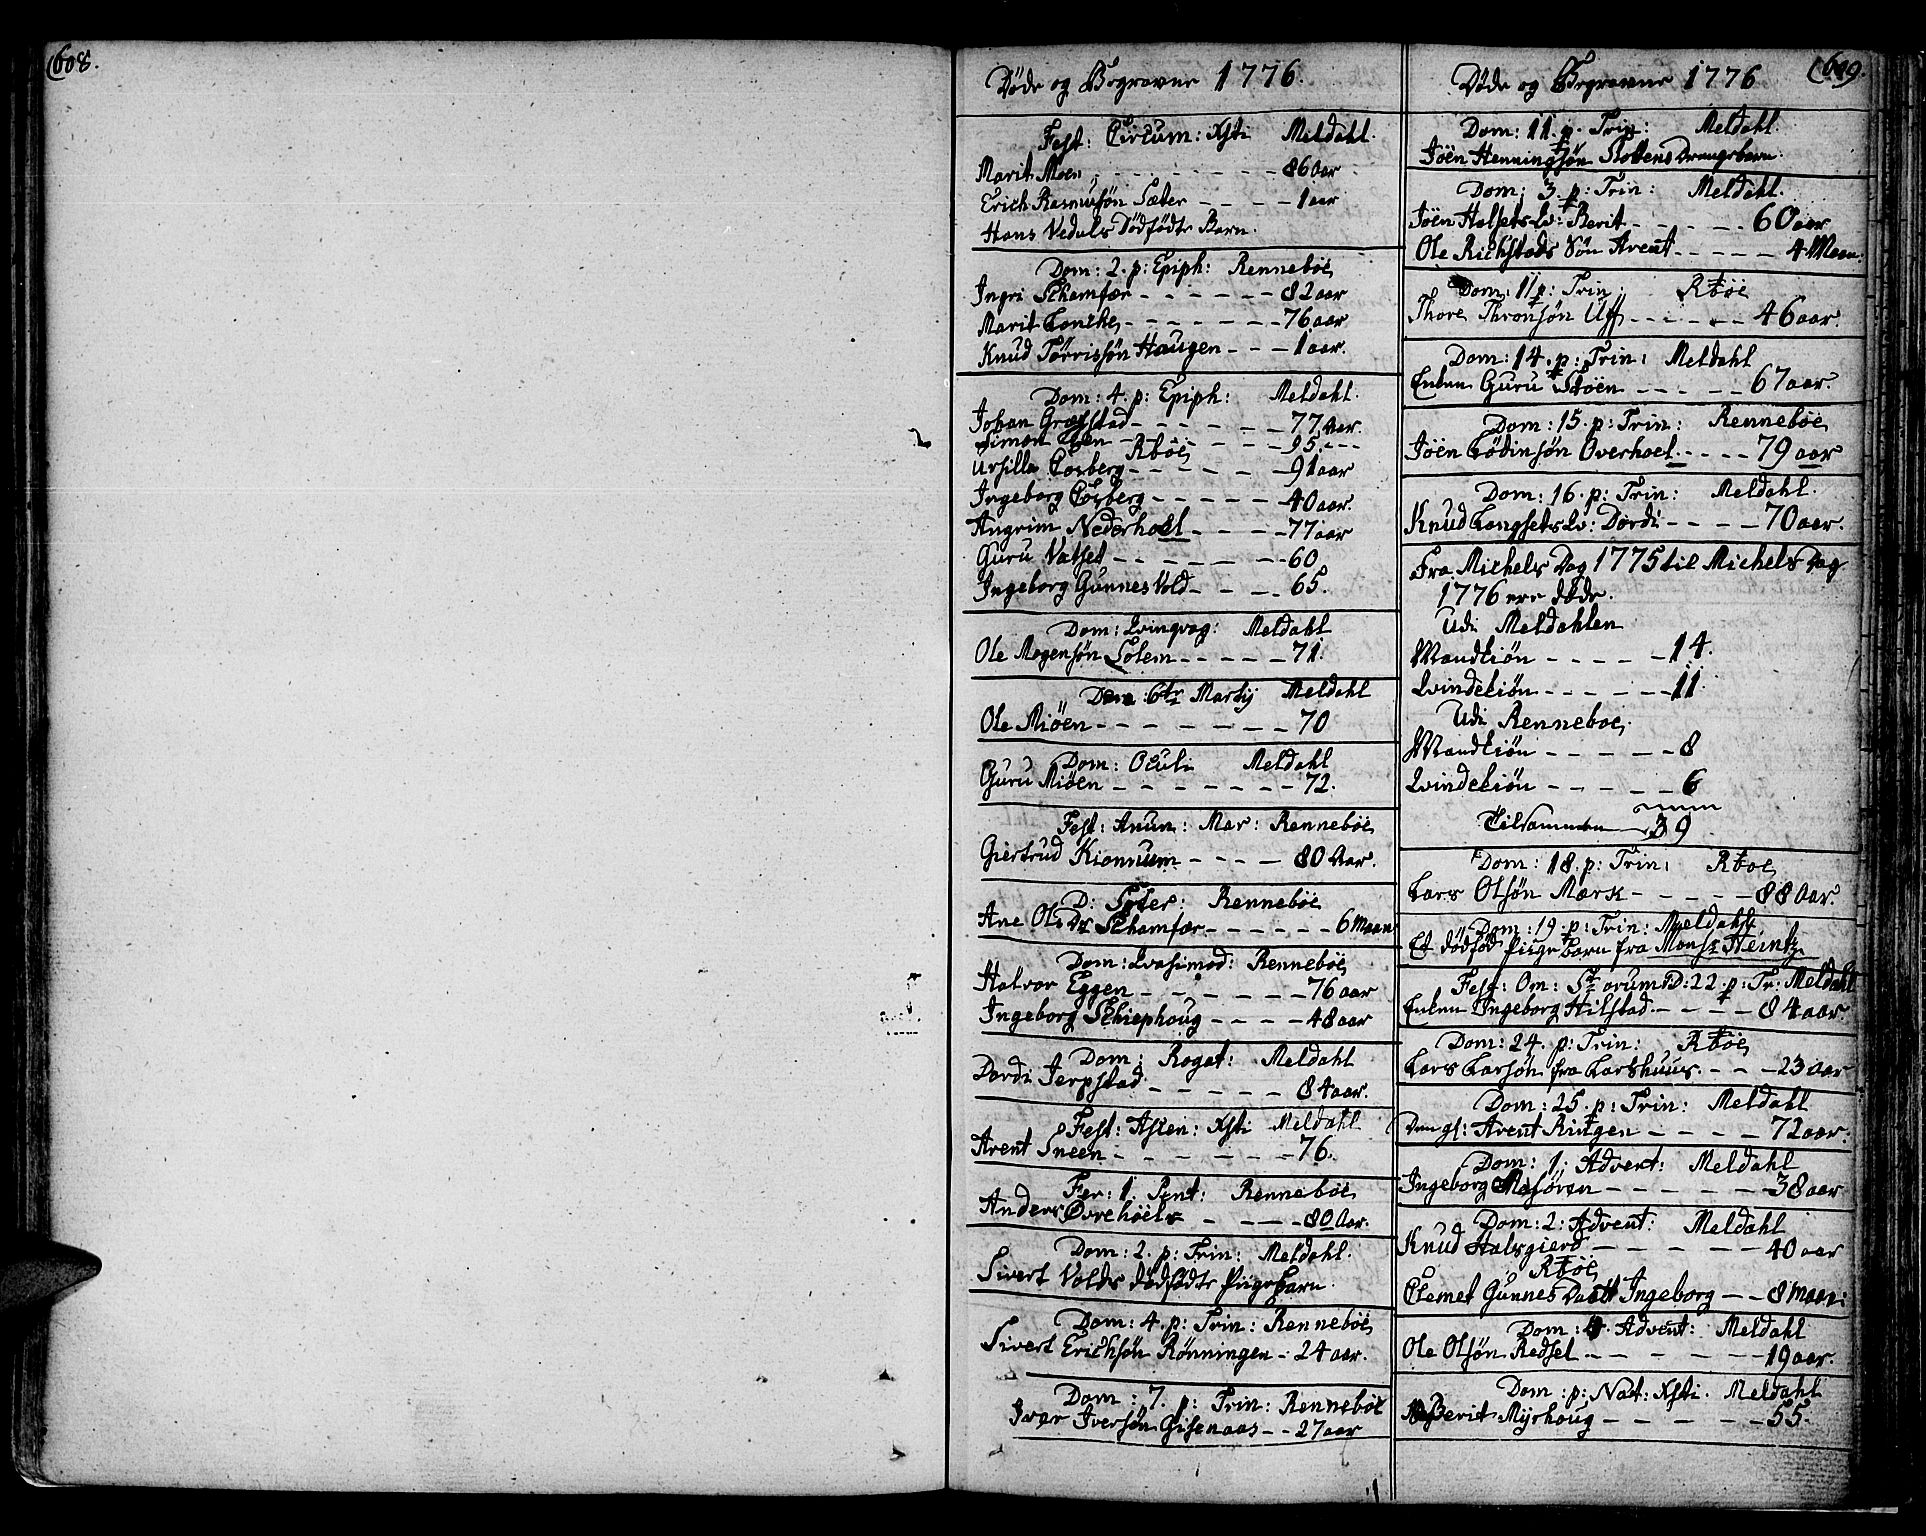 608.
Døde og Begravne 1776.
Fest: Circum: Xsti Meldahl.
Marit Moen - - - - - - - - 86 aar
Erich Rasmusøn Sæter - - - - 1 aar
Hans Vedals Dødfødte Barn.
Dom: 2. p: Epiph: Renneboe
Ingri Schamfær - - - - - - 82 aar
MaritLoncke - - - - - - - 76 aar
Knud Torrissøn Haugen - - - 1 aar.
Dom: 4. p: Epiph: Meldahl.
Johan Grefstad - - - - - - - 77. aar.
Simon - - - - - - 95. - - -
Rboe
Ursilla Cosberg - - - - - - 91 aar
Ingeborg Cosberg - - - - - 40 aar.
Angrim Nederhoel - - - - 77 aar
Guru Vatset - - - - - - - 60
Ingeborg Gunnes Vold - - - - 65.
Dom: Qvinqvag: Meldahl
Ole Mogensøn Solem - - - - - 71.
Dom: 6tr Martij Meldahl
Ole Miøen - - - - - - - - 70
Dom: Oculi Meldahl
Guru Miøen - - - - - - - 72.
Fest: Anun: Mar: Renneboe
Giertrud Kionnum - - - - 80 Aar.
D: Palm: Renneboe
Ane Ols Dr Schamfær - - - - - - 6 Maan
Dom: Qvasimod: Renneboe
Halvor Eggen - - - - - - - 76 aar
Ingeborg Schiephoug - - - - 48 aar
Dom: Rogat: Meldahl
Dordi Jerpstad - - - - - - 84 aar.
Fest: Ascen: Xsti Meldahl
Arent Sneen - - - - - - - 76.
Fer: 1. Pent: Renneboe
Anders Øvrehoels - - - - 80 Aar.
Dom: 2. p: Trin: Meldahl.
Sivert Volds dødfødte Pigebarn.
Dom: 4. p: Trin: Renneboe
Sivert Erichsøn Rønningen - 24 aar.
Dom: 7. p: Trin: Renneboe
Ivar Iversøn Gisenaas - - 27 aar
609.
Døde og Begravne 1776
Dom: 11. p. Trin: Meldahl.
Joen Henningsøn Drengebarn.
Dom: 3. p: Trin: Meldahl.
Joen Halsets Qv: Berit - - - - - 60 aar
Ole Richstads Søn Arent - - - - - 4 Maan.
Dom: 11 p: Trin: Rboe
Thore Thronsøn Uff - - - - - 46 aar.
Dom: 14. p: Trin: Meldahl
Enken Guru Støen - - - - - 67 aar.
Dom: 15. p: Trin: Renneboe
Joen Lødinsøn Overhoel - - - - 79 aar
Dom: 16. p: Trin: Meldahl.
Knud Langsets Qv: Dordi - - - - 70 aar.
Fra Michels Dag 1775 til Michels Dag
1776 ere døde.
Udi Meldahlen
Mandkiøn - - - - - 14.
Qvindekiøn - - - - - - 11.
Udi Renneboe
Mandkiøn - - - - - - 8
Qvindekiøn - - - - - - 6
Tilsammen 39
Dom: 18. p: Trin: Rboe
Lars Olsøn Mærk - - - - - 88 Aar.
Dom: 19. p: Trin: Meldahl
Et dødfød Pigebarn fra Monsr Heintz
Fest: Om: Storum D: 22. p: Tr: Meldahl
Enken Ingeborg Hilstad - - - - - 84 aar.
Dom: 24. p: Trin: Rboe
Lars Larsøn fra Larshuus - - - 23 aar
Dom: 25. p: Trin: Meldahl
Den gl: Arent Ringen - - - - - 72 aar.
Dom: 1. Advent: Meldahl
Ingeborg - - - - - - 38 aar
Dom: 2: Advent: Meldahl
Knud Halsgierd - - - - - - 40 aar
Rboe
Clemet Gunnes Datt Ingeborg - - 8 maan:
Dom: 4. Advent: Meldahl
Ole Olsøn Redsel - - - - - - - 19 aar.
Dom: p: Nat: Xsti. Meldahl
Berit Myrhoug - - - - - - 55.